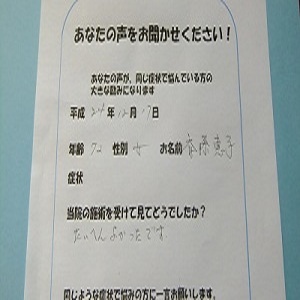 あなたの声をお聞かせください！
あなたの声が、同じ症状で悩んでいる方の
大きな励みになります
平成 24 年 12 月 17 日
年齢 72 性別 女 お名前 斎藤恵子
症状
当院の施術を受けて見てどうでしたか？
たいへんよかったです。
同じような症状で悩みの方に一言お願いします。